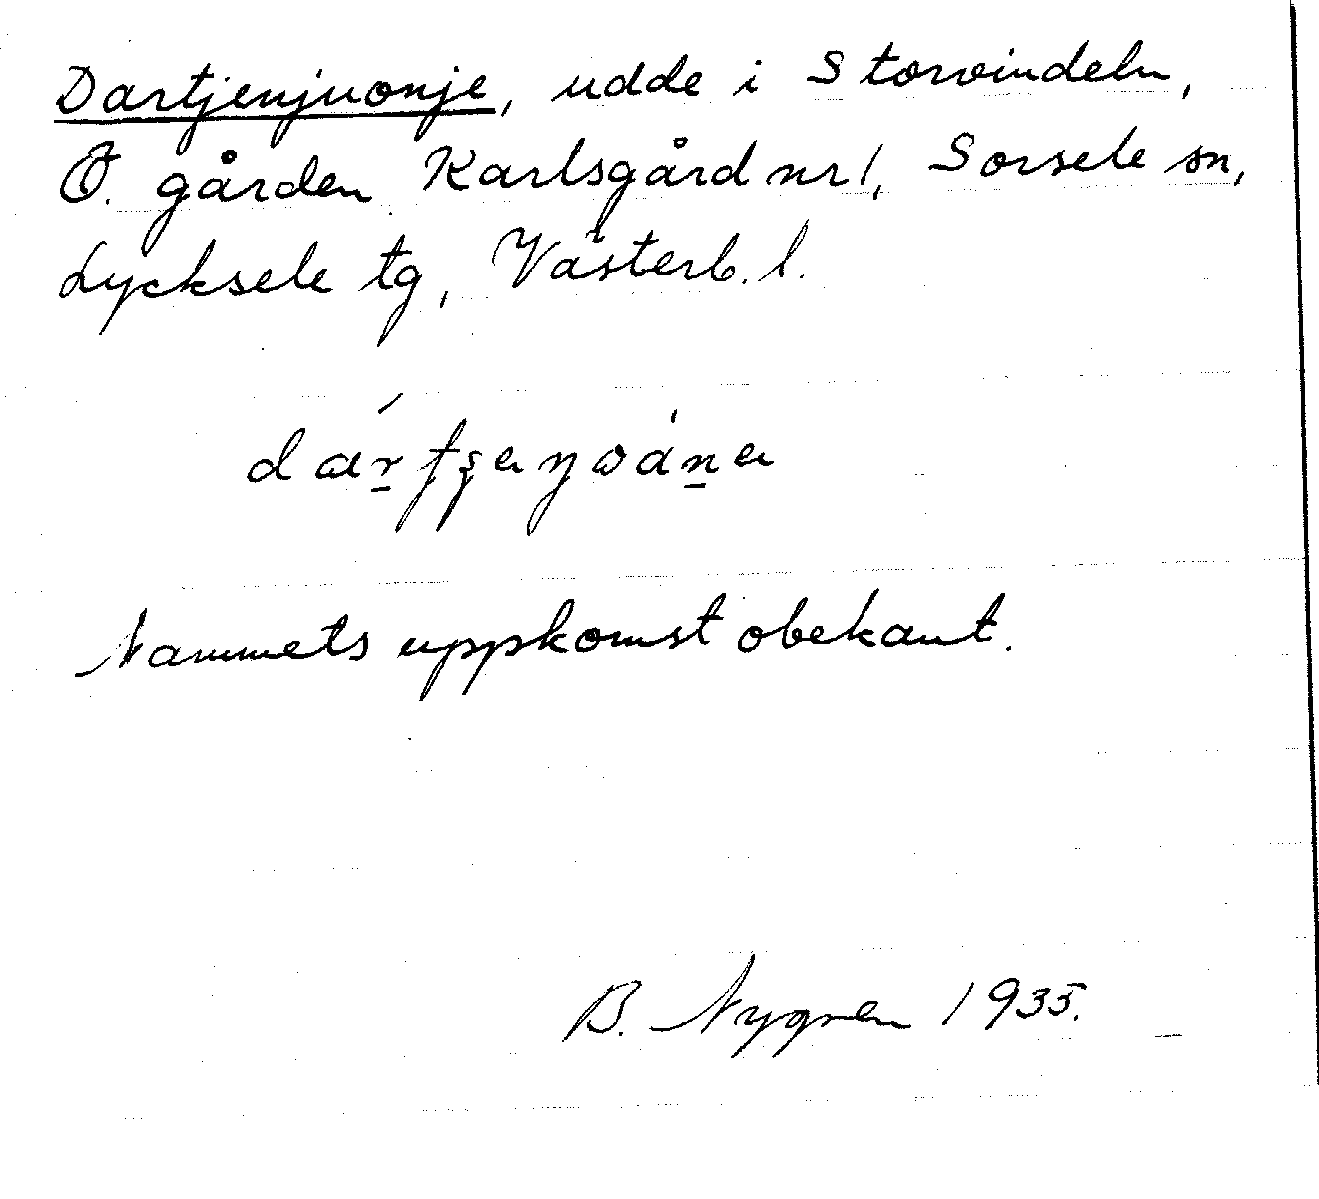 Dartjenjuonje, udde i Storvindeln,
Ö. gården Karlsgård nr 1, Sorsele sn,
Lycksele tg, Västerb. l.
Namnets uppkomst obekant.
B. Nygren 1935.